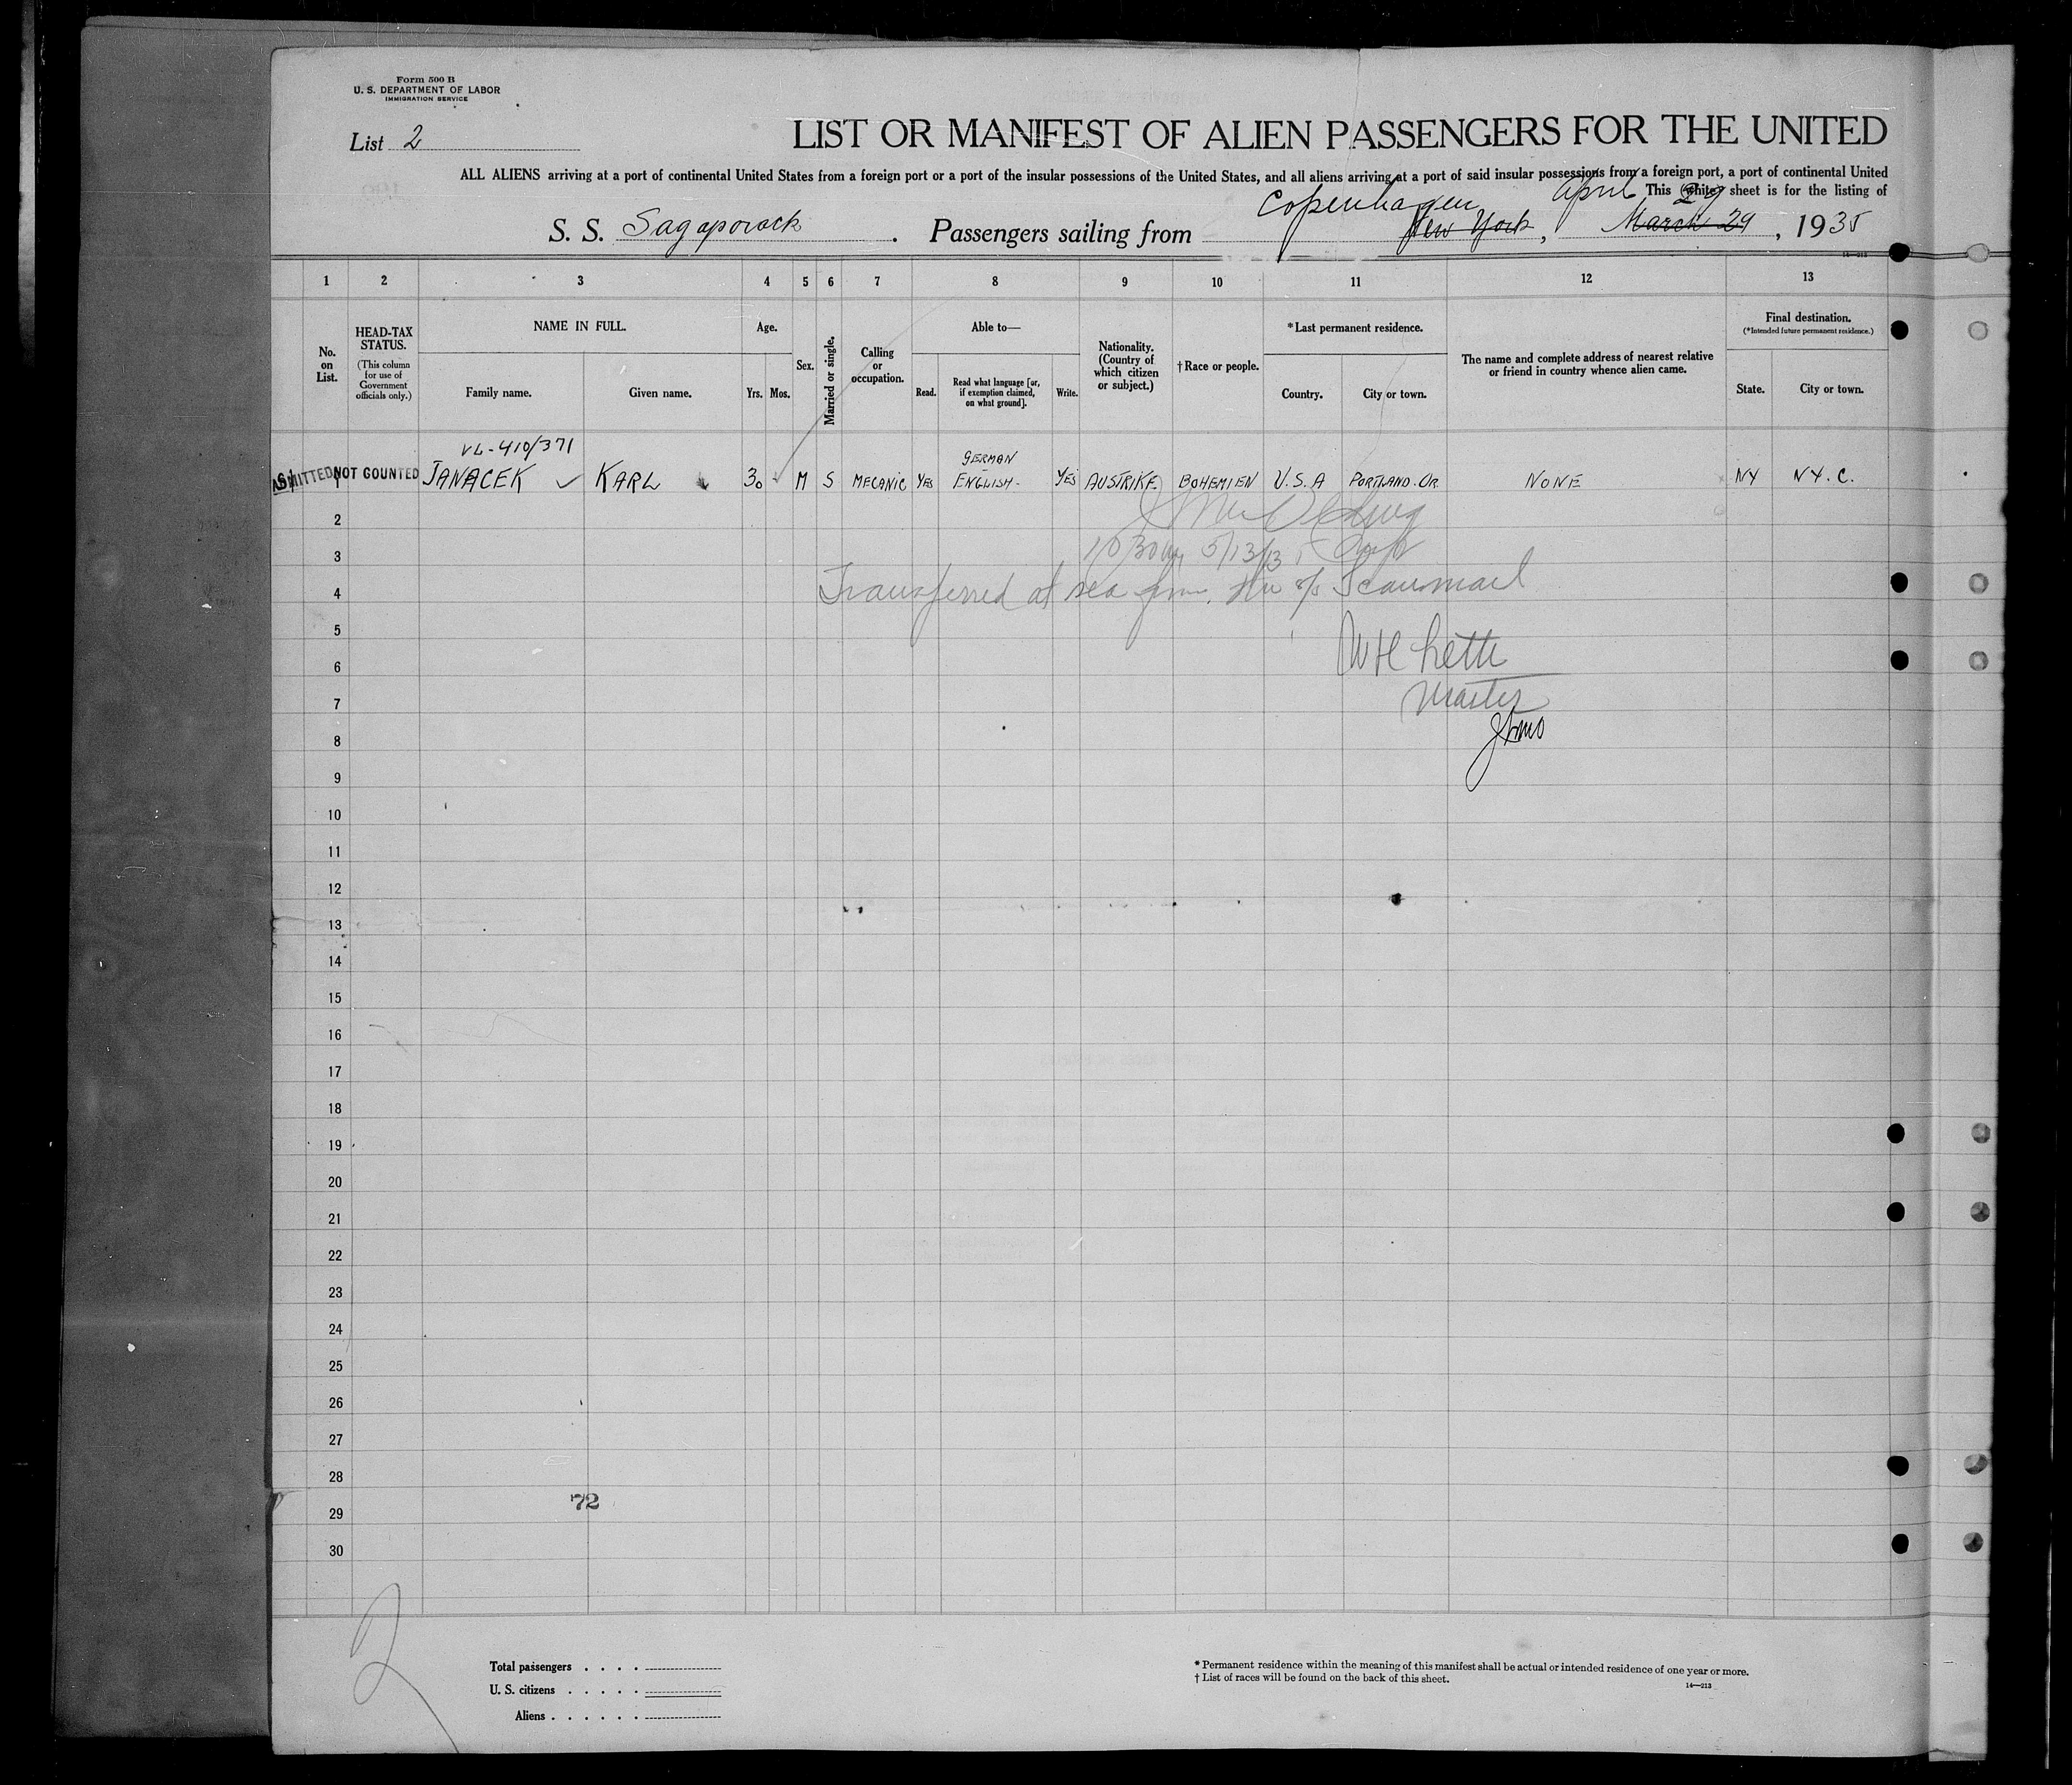 Form 500 B
U. S. DEPARTMENT OF LABOR
IMMIGRATION SERVICE
List 2
LIST OR MANIFEST OF ALIEN PASSENGERS FOR THE UNITED
ALL ALIENS arriving at a port of continental United States from a foreign port or a port of the insular possessions of the United States, and all aliens arriving at a port of said insular possessions from a foreign port, a port of continental United
This (white) sheet is for the listing of
Copenhagen April 29
S. S. Sagaporack . Passengers sailing from New York, March 29, 1935
14—213
1 2 3 4 5 6 7 8 9 10 11 12 13
No. on List.
HEAD-TAX STATUS.
(This column for use of Government officials only.)
NAME IN FULL.
Family name. Given name.
Age.
Yrs. Mos.
Sex.
Married or single.
Calling or occupation.
Able to—
Read.
Read what language [or, if exemption claimed, on what ground].
Write.
Nationality. (Country of which citizen or subject.)
† Race or people.
* Last permanent residence.
Country. City or town.
The name and complete address of nearest relative or friend in country whence alien came.
Final destination.
(*Intended future permanent residence.)
State. City or town.
VL-410/371
GERMAN
ADMITTED NOT COUNTED JANACEK KARL 30 M S MECANIC YES ENGLISH- YES BOHEMIEN U.S.A PORTLAND.OR NONE NY NY.C.
2
3
4 Transferred at sea S/S Scanmail
5
6
7 Master
8
9
10
11
12
13
14
15
16
17
18
19
20
21
22
23
24
25
26
27
28
72
29
30
2
Total passengers
U. S. citizens
Aliens
* Permanent residence within the meaning of this manifest shall be actual or intended residence of one year or more.
† List of races will be found on the back of this sheet.
14—213